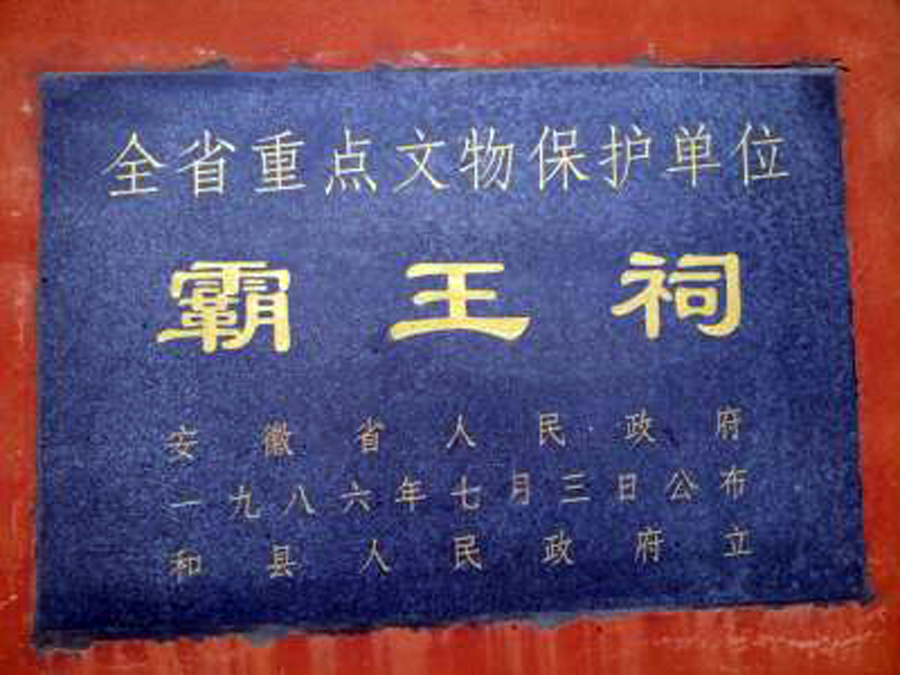 全省重点文物保护单位
霸王祠
安徽省人民政府
一九八六年七月三日公布
和县人民政府立